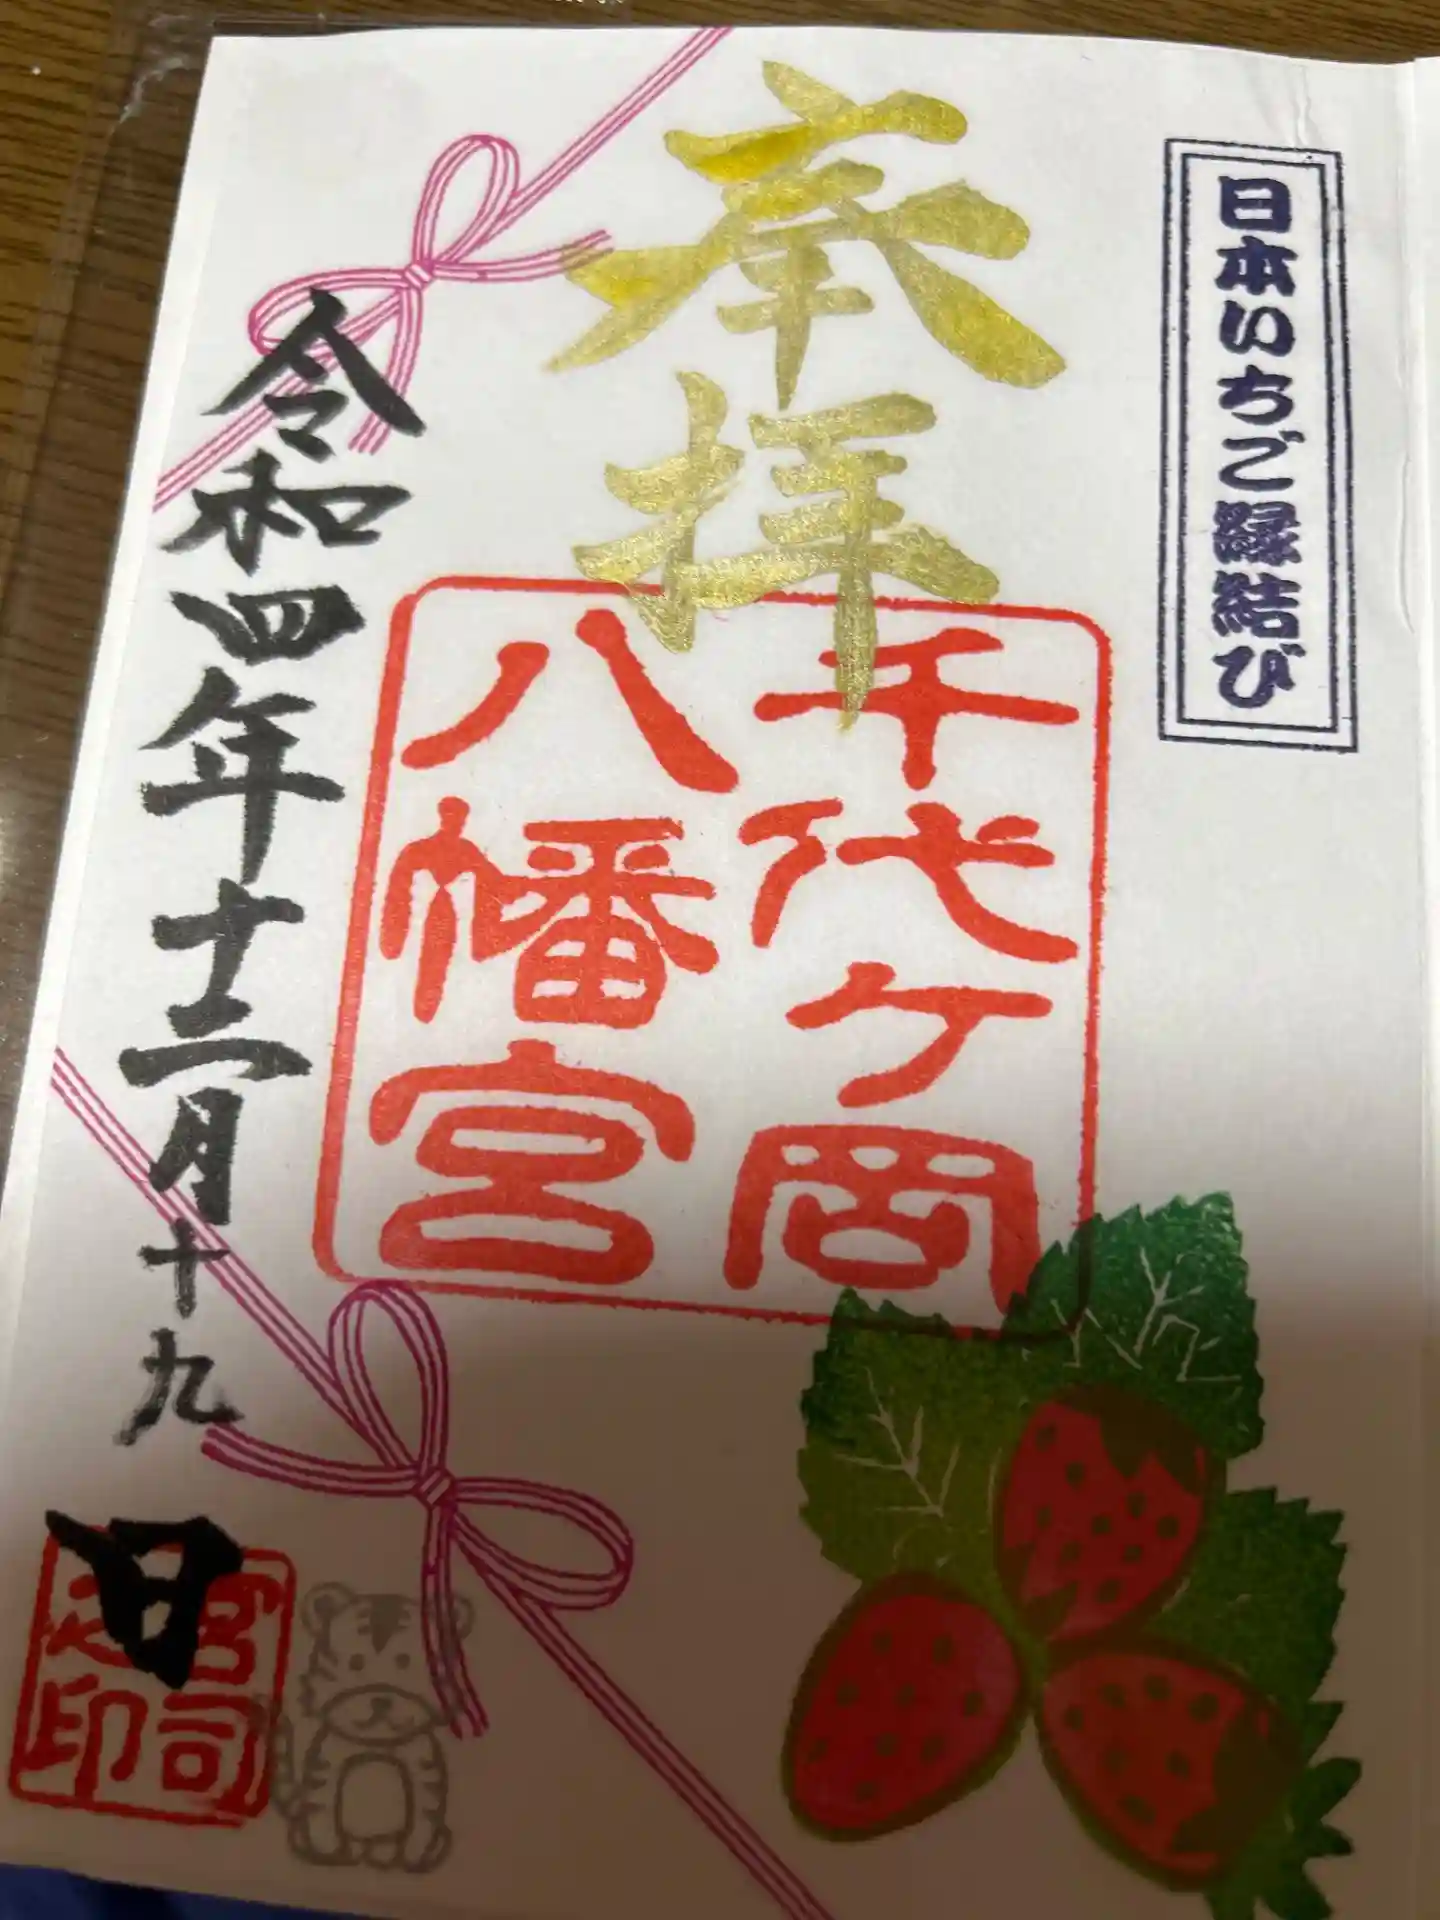 日本いちご縁結び
奉拝
千代ケ岡
八幡宮
令和四年十二月十九日
宮司
之印